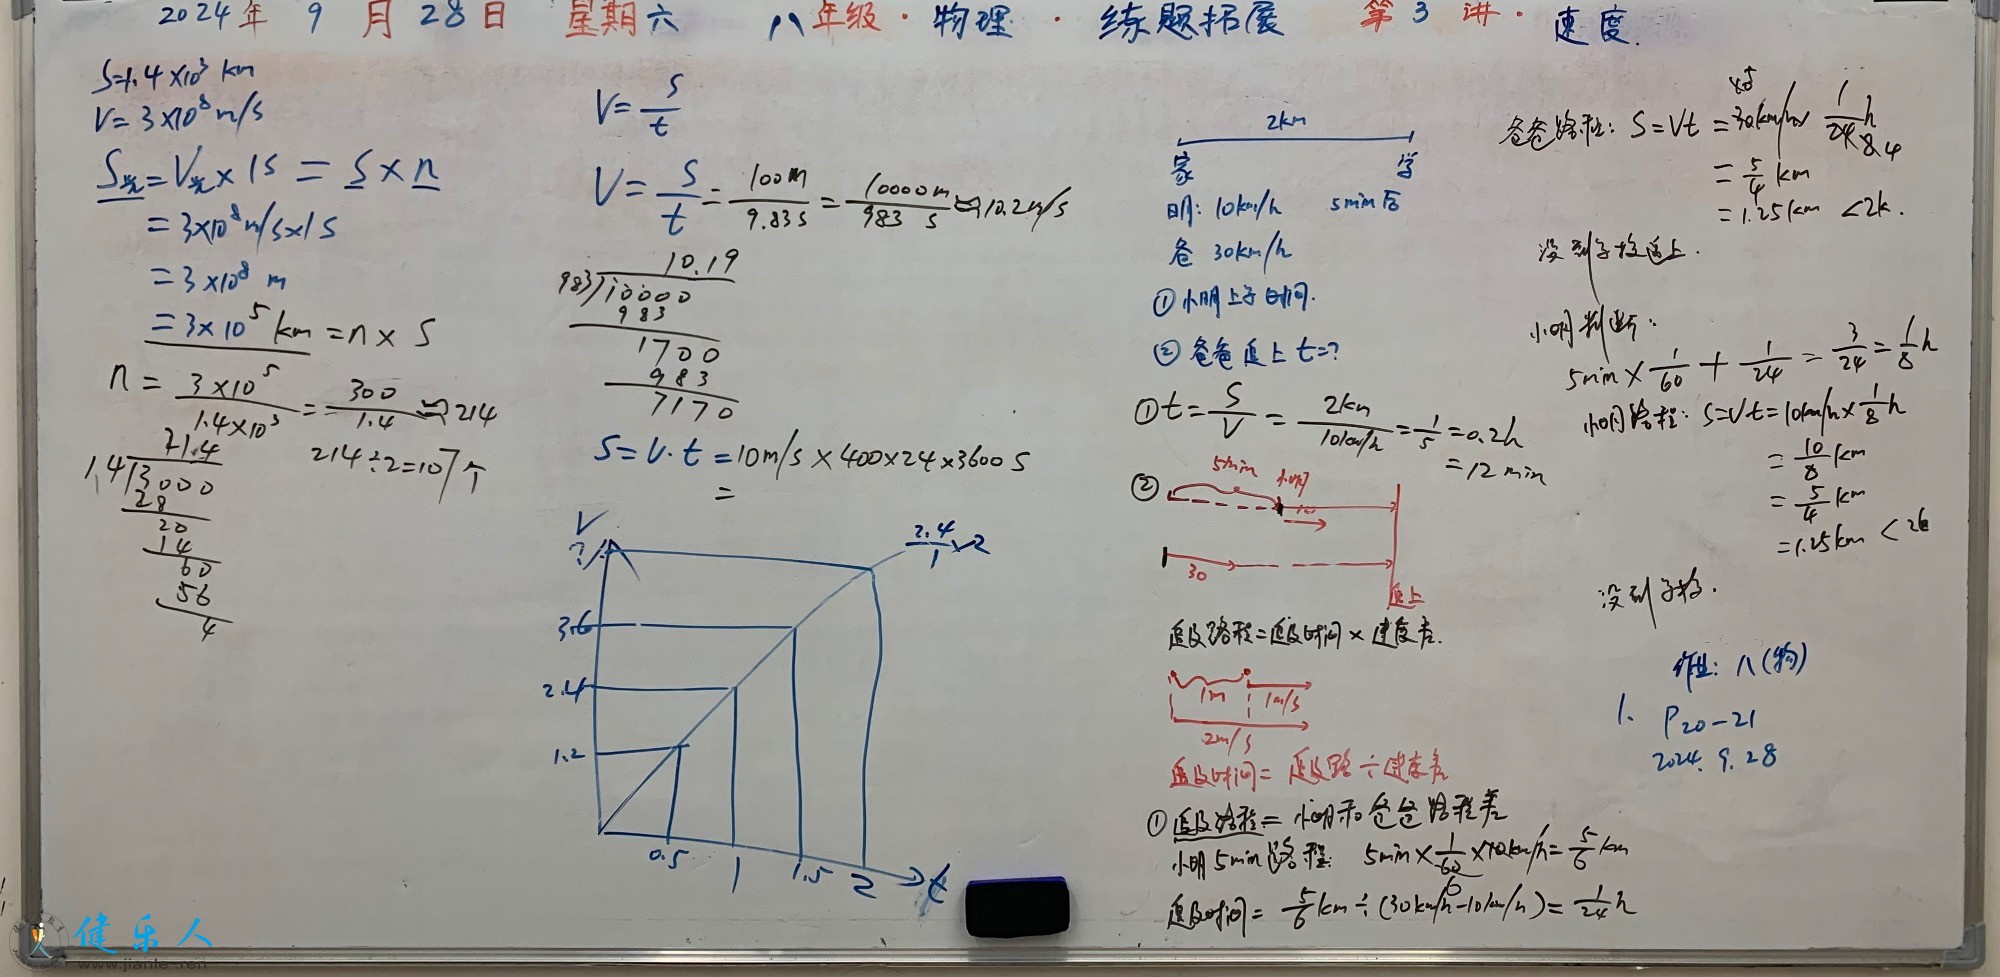 2024年 9 月 28日 星期六 八年级·物理·练题拓展 第 3 讲·速度.
S=1.4×10³ km
V=3×10⁸ m/s
S光=V光×1S=S×n
=3×10⁸m/s×1S
=3×10⁸ m
=3×10⁵ km=n×S
n=3×10⁵/1.4×10³=300/1.4≈214
214÷2=107个
21.4
1.4 3000
28
20
14
60
56
4
V=S/t
V=S/t=100m/9.83s=10000m/983 s≈10.2m/s
10.19
983 10000
983
1700
983
7170
S=V·t=10m/s×400×24×3600S
=
V
?
2.4/1×2
3.6
2.4
1.2
0.5 1 1.5 2 t
2km
家 学
明: 10km/h 5min后
爸 30km/h
①小明上学时间.
②爸爸追上t=?
①t=S/V=2km/10km/h=1/5=0.2h
=12 min
② 5min 小明
10
30
追上
追及路程=追及时间×速度差.
1m 1m/s
2m/s
追及时间=追及路÷速度差
①追及路程=小明和爸爸路程差
小明5min路程: 5min×1/60×10km/h=5/6km
追及时间=5/6km÷(30km/h-10km/h)=1/24h
爸爸路程: S=Vt=30km/h×1/24h
=5/4 km
=1.25km <2k.
没到学校追上.
小明判断:
5min×1/60+1/24=3/24=1/8h
小明路程: S=Vt=10km/h×1/8h
=10/8km
=5/4km
=1.25km <2k
没到学校.
作业: 八(物)
1. P20-21
2024.9.28
健乐人
www.jianle-ren